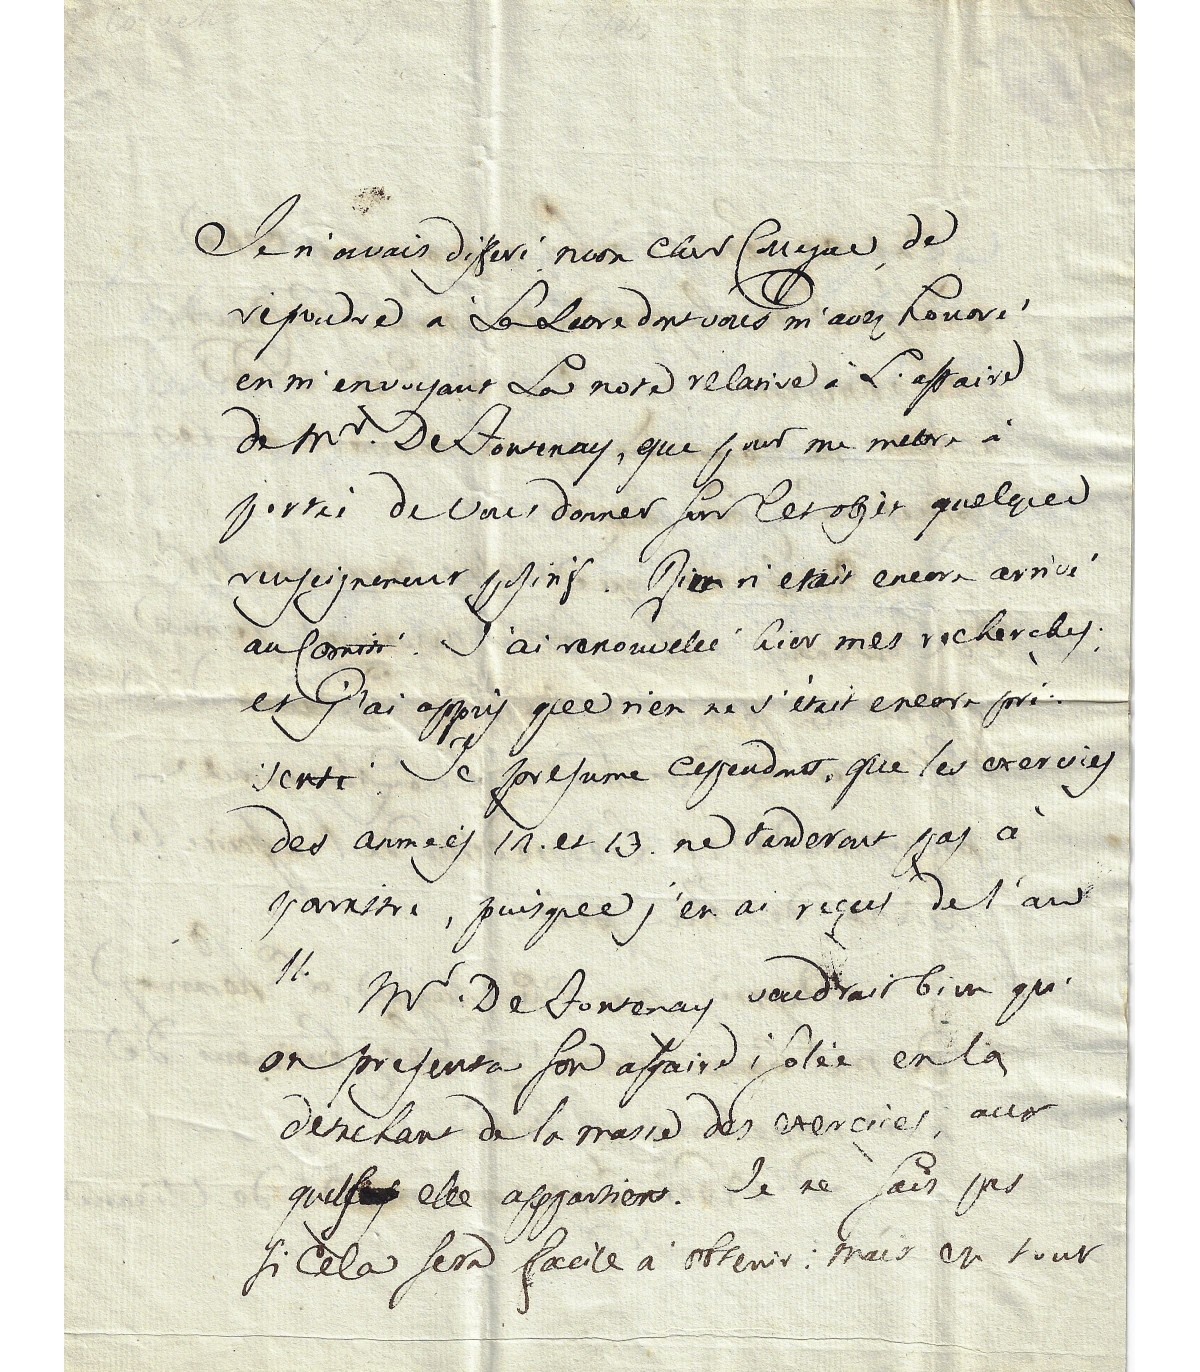 Je n'avais différé, mon cher Collegue, de
répondre à La Lettre dont vous m'avez honoré
en m'envoyant La note relative à L'affaire
de Mr. De Fontenay, que pour me mettre à
portée de vous donner sur cet objet quelques
renseignemens positifs. Rien n'était encore arrivé
au Comité. J'ai renouvellé hier mes recherches,
et j'ai appris que rien ne s'était encore pré-
senté. Je presume cependant, que les exercices
des années 12. et 13. ne tarderont pas à
paraitre, puisque j'en ai reçus de l'an
11.
Mr. De Fontenay voudrait bien qu'
on presenta son affaire isolée en la
détachant de la masse des exercices, aux
quels elle appartient. Je ne sais pas
si cela sera facile à obtenir : mais en tout